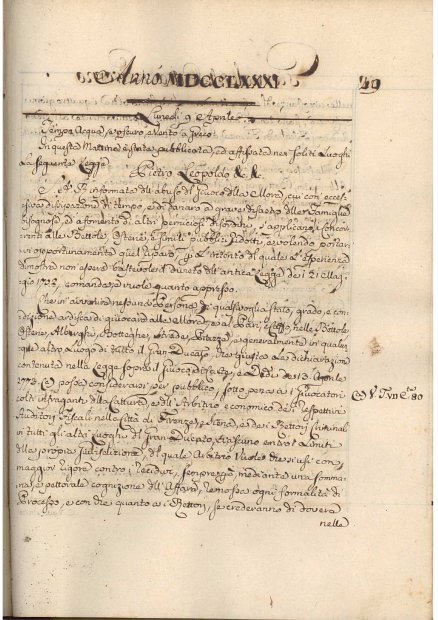 Anno MDCCLXXXI 49
Lunedi 9 Aprile
Tempo Acqua, e oscuro, e vento a
In questa Mattina è stata pubblicata, ed affissata nei soliti Luoghi
la seguente Legge
Pietro Leopoldo &c. &c.
S. A. R. informata dell' abuso del Giuoco della Mora, cui con ecces-
siva dissipazione di tempo, e di danaro, a grave disastro delle Famiglie
bisognose, ed a fomento di altri perniciosi disordini s' applicano i Concor-
renti alle Bettole, Osterie, e simili pubblici Ridotti, e volendo portar-
vi opportunamente quel riparo, a l' intento di quale l' esperienza
dimostra non essere bastevole il divieto dell' antica Legge de i 21 Mag-
gio comanda, e vuole quanto appresso.
Che in avvenire nessuna Persona di qualsivoglia stato, grado, e con-
dizione ardisca di giuocare alla Mora, o al nelle Bettole
Osterie, Alberghi, Botteghe, Strade, Piazze, e generalmente in qualun-
que altro Luogo di tutto il Gran-Ducato, che giusta la dichiarazione
contenuta nella Legge sopra i Giuochi de' 13. Aprile
1773. possa considerarsi per pubblico, sotto pena a i Giuocatori
colti infraganti della Cattura, e dell' Arbitrio economico de i respettivi
Auditori Fiscali nelle Città di Firenze, e Siena, e de i Rettori Criminali
di tutti gli altri Luoghi del Gran-Ducato, ciascuno entro i Limiti
della propria Jurisdizione, del quale Arbitrio Vuole che si usi con
maggior rigore contro i recidivi, sempre però mediante una somma-
ria, e pettorale cognizione dell' Affare, remossa ogni formalità di
Processo, e con che quanto a i Rettori, se crederanno di dovere
nelle